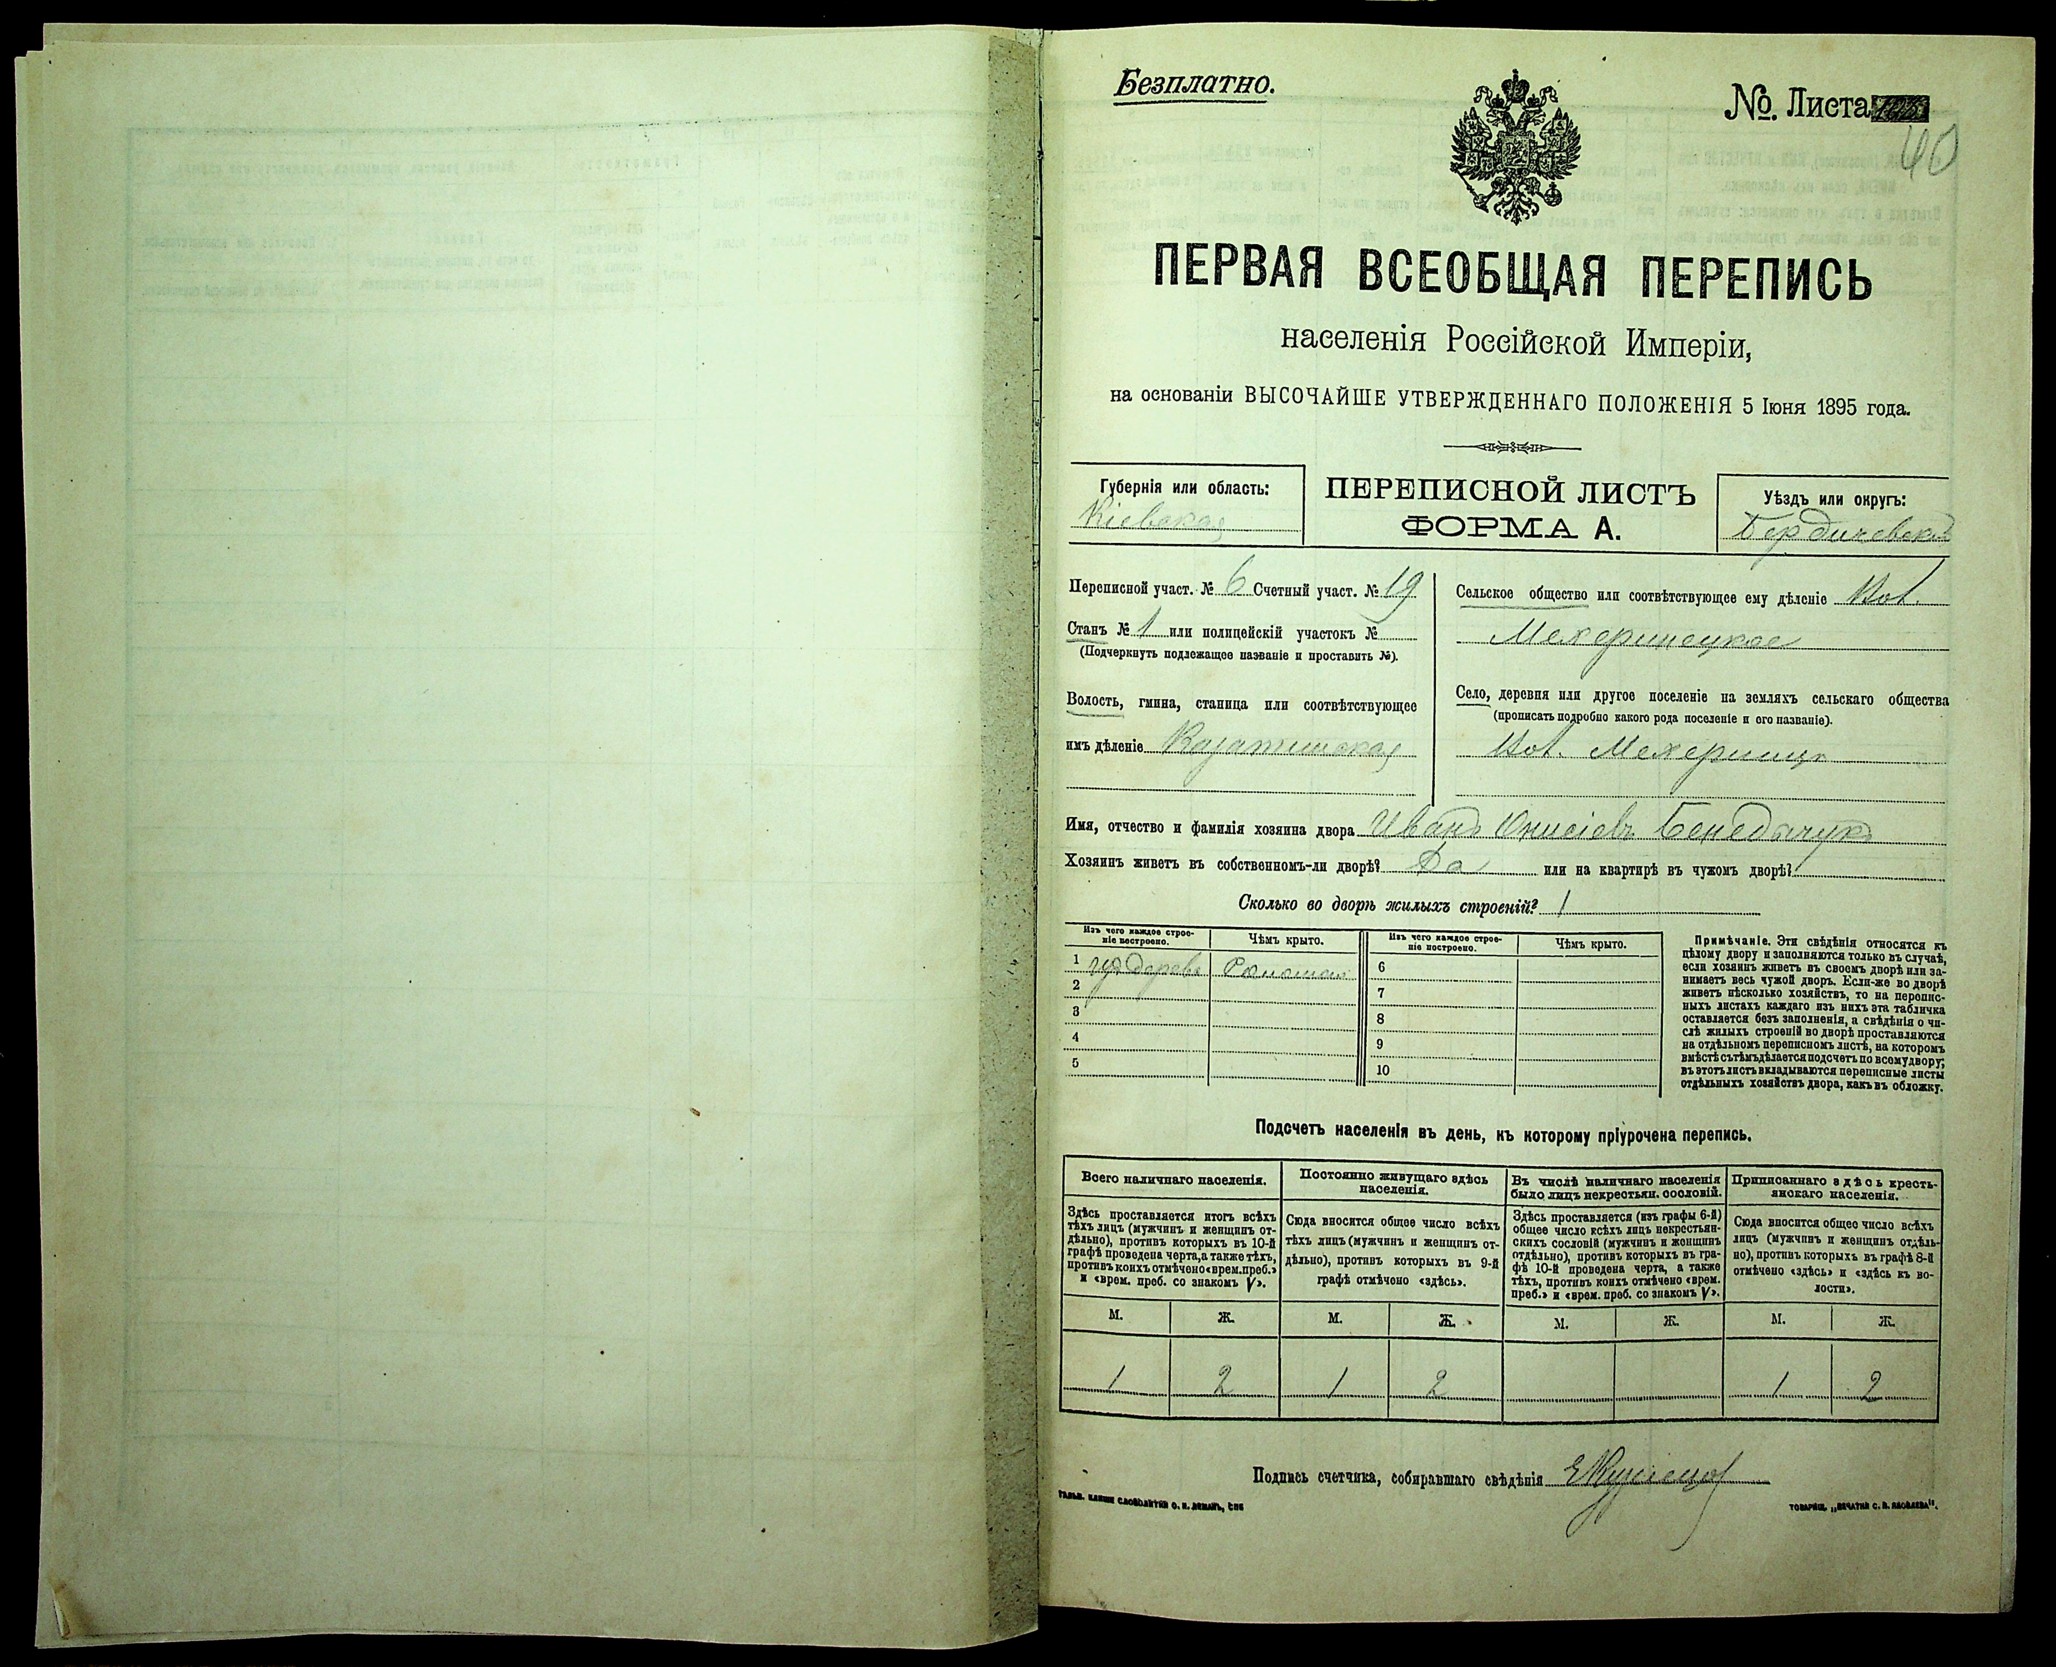 Безплатно.
№. Листа
40
ПЕРВАЯ ВСЕОБЩАЯ ПЕРЕПИСЬ
населенія Россійской Имперіи,
на основаніи ВЫСОЧАЙШЕ УТВЕРЖДЕННАГО ПОЛОЖЕНІЯ 5 Іюня 1895 года.
Губернія или область:
Кіевская
ПЕРЕПИСНОЙ ЛИСТЪ
ФОРМА А.
Уѣздъ или округъ:
Бердичевскій
Переписной участ. № 6 Счетный участ. № 19
Станъ № 1 или полицейскій участокъ №
(Подчеркнуть подлежащее названіе и проставить №).
Волость, гмина, станица или соотвѣтствующее
имъ дѣленіе Козатинская
Сельское общество или соотвѣтствующее ему дѣленіе
Махеринецкое
Село, деревня или другое поселеніе на земляхъ сельскаго общества
(прописать подробно какого рода поселеніе и его названіе).
Махеринцы
Имя, отчество и фамилія хозяина двора Иванъ Онисіевъ Бенедычукъ
Хозяинъ живетъ въ собственномъ-ли дворѣ? Да или на квартирѣ въ чужомъ дворѣ?
Сколько во дворѣ жилыхъ строеній? 1
Изъ чего каждое строе-
ніе построено.
Чѣмъ крыто.
1 изъ дерева Соломой
2
3
4
5
Изъ чего каждое строе-
ніе построено.
Чѣмъ крыто.
6
7
8
9
10
Примѣчаніе. Эти свѣдѣнія относятся къ
цѣлому двору и заполняются только въ случаѣ,
если хозяинъ живетъ въ своемъ дворѣ или за-
нимаетъ весь чужой дворъ. Если-же во дворѣ
живетъ нѣсколько хозяйствъ, то на перепис-
ныхъ листахъ каждаго изъ нихъ эта табличка
оставляется безъ заполненія, а свѣдѣнія о чи-
слѣ жилыхъ строеній во дворѣ проставляются
на отдѣльномъ переписномъ листѣ, на которомъ
вмѣстѣ съ тѣмъ дѣлается подсчетъ по всему двору;
въ этотъ листъ вкладываются переписные листы
отдѣльныхъ хозяйствъ двора, какъ въ обложку.
Подсчетъ населенія въ день, къ которому пріурочена перепись.
Всего наличнаго населенія.
Здѣсь проставляется итогъ всѣхъ
тѣхъ лицъ (мужчинъ и женщинъ от-
дѣльно), противъ которыхъ въ 10-й
графѣ проведена черта, а также тѣхъ,
противъ коихъ отмѣчено «врем. преб.»
и «врем. преб. со знакомъ V».
М. Ж.
1 2
Постоянно живущаго здѣсь
населенія.
Сюда вносится общее число всѣхъ
тѣхъ лицъ (мужчинъ и женщинъ от-
дѣльно), противъ которыхъ въ 9-й
графѣ отмѣчено «здѣсь».
М. Ж.
1 2
Въ числѣ наличнаго населенія
было лицъ некрестьян. сословій.
Здѣсь проставляется (изъ графы 6-й)
общее число всѣхъ лицъ некрестьян-
скихъ сословій (мужчинъ и женщинъ
отдѣльно), противъ которыхъ въ гра-
фѣ 10-й проведена черта, а также
тѣхъ, противъ коихъ отмѣчено «врем.
преб.» и «врем. преб. со знакомъ V».
М. Ж.
Приписаннаго здѣсь кресть-
янскаго населенія.
Сюда вносится общее число всѣхъ
лицъ (мужчинъ и женщинъ отдѣль-
но), противъ которыхъ въ графѣ 8-й
отмѣчено «здѣсь» и «здѣсь къ во-
лости».
М. Ж.
1 2
Подпись счетчика, собиравшаго свѣдѣнія
ГАЛЬВ. КЛИШЕ СЛОВОЛИТНИ О. И. ЛЕМАНЪ, СПБ
ТОВАРИЩ. „ПЕЧАТНЯ С. П. ЯКОВЛЕВА".